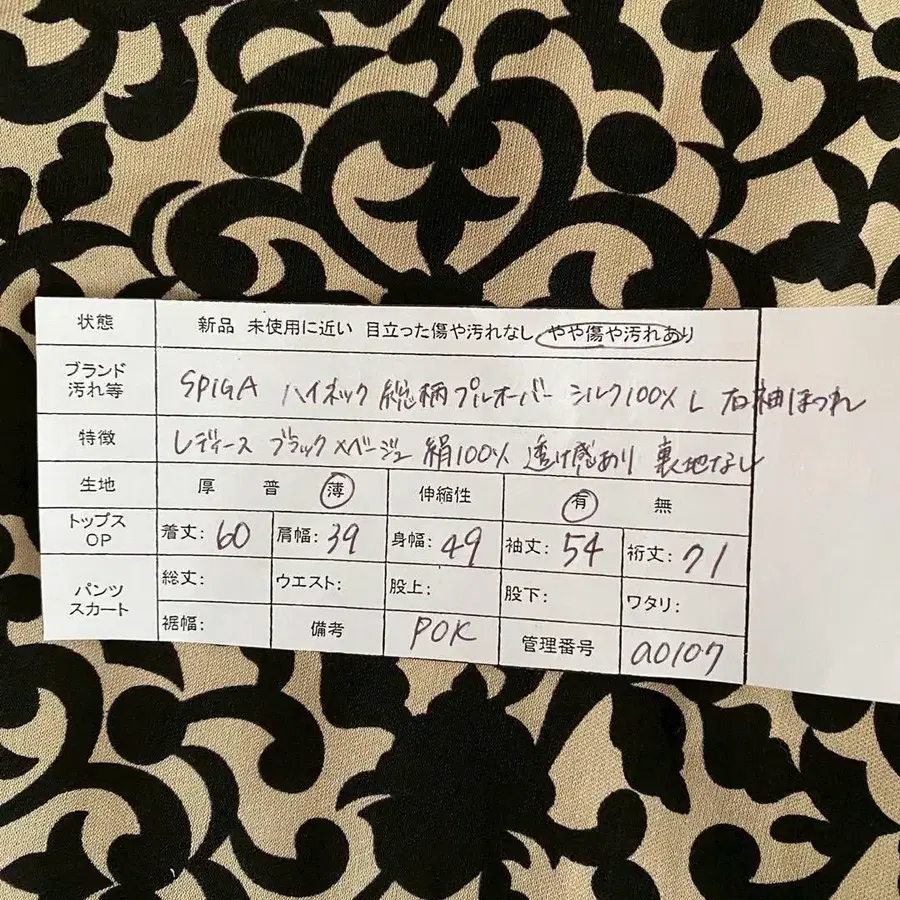 状態 新品 未使用に近い 目立った傷や汚れなし やや傷や汚れあり
ブランド 汚れ等 SPIGA ハイネック 総柄プルオーバー シルク100% L 右袖ほつれ
特徴 レディース ブラック×ベージュ 絹100% 透け感あり 裏地なし
生地 厚 普 薄 伸縮性 有 無
トップス OP 着丈: 60 肩幅: 39 身幅: 49 袖丈: 54 裄丈: 71
パンツ スカート 総丈: ウエスト: 股上: 股下: ワタリ:
裾幅: 備考 POK 管理番号 a0107